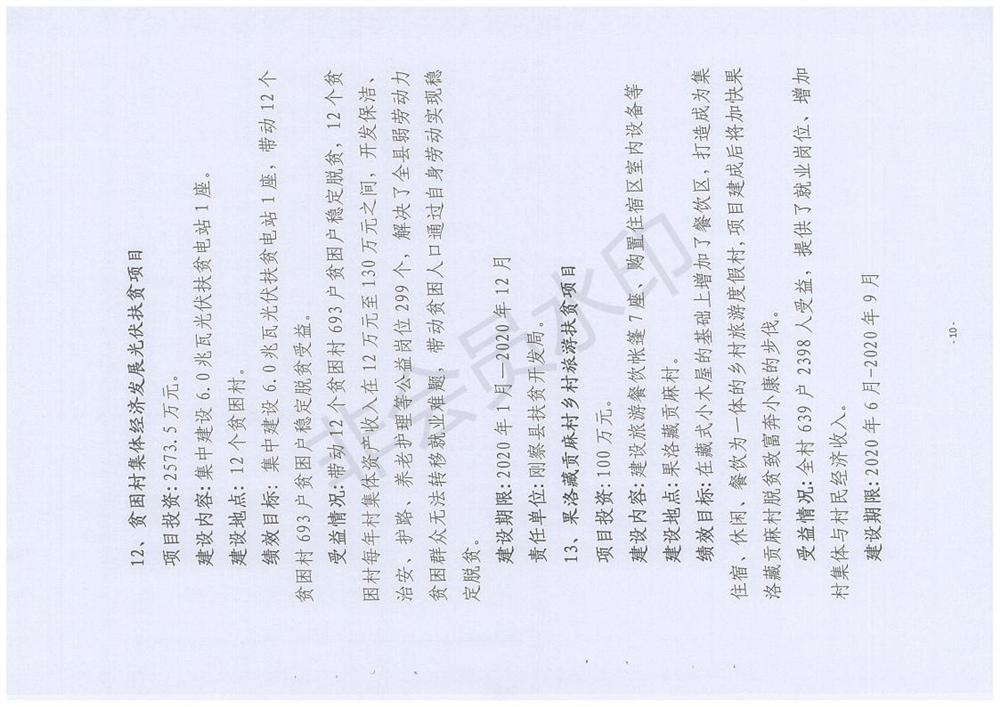 12、贫困村集体经济发展光伏扶贫项目
项目投资: 2573.5 万元。
建设内容: 集中建设 6.0 兆瓦光伏扶贫电站 1 座。
建设地点: 12 个贫困村。
绩效目标: 集中建设 6.0 兆瓦光伏扶贫电站 1 座，带动 12 个
贫困村 693 户贫困户稳定脱贫受益。
受益情况: 带动 12 个贫困村 693 户贫困户稳定脱贫，12 个贫
困村每年村集体资产收入在 12 万元至 130 万元之间，开发保洁、
治安、护路、养老护理等公益岗位 299 个，解决了全县弱劳动力
贫困群众无法转移就业难题，带动贫困人口通过自身劳动实现稳
定脱贫。
建设期限: 2020 年 1 月—2020 年 12 月
责任单位: 刚察县扶贫开发局。
13、果洛藏贡麻村乡村旅游扶贫项目
项目投资: 100 万元。
建设内容: 建设旅游餐饮帐篷 7 座、购置住宿区室内设备等
建设地点: 果洛藏贡麻村。
绩效目标: 在藏式小木屋的基础上增加了餐饮区，打造成为集
住宿、休闲、餐饮为一体的乡村旅游度假村，项目建成后将加快果
洛藏贡麻村脱贫致富奔小康的步伐。
受益情况: 全村 639 户 2398 人受益，提供了就业岗位、增加
村集体与村民经济收入。
建设期限: 2020 年 6 月-2020 年 9 月
-10-
非会员水印